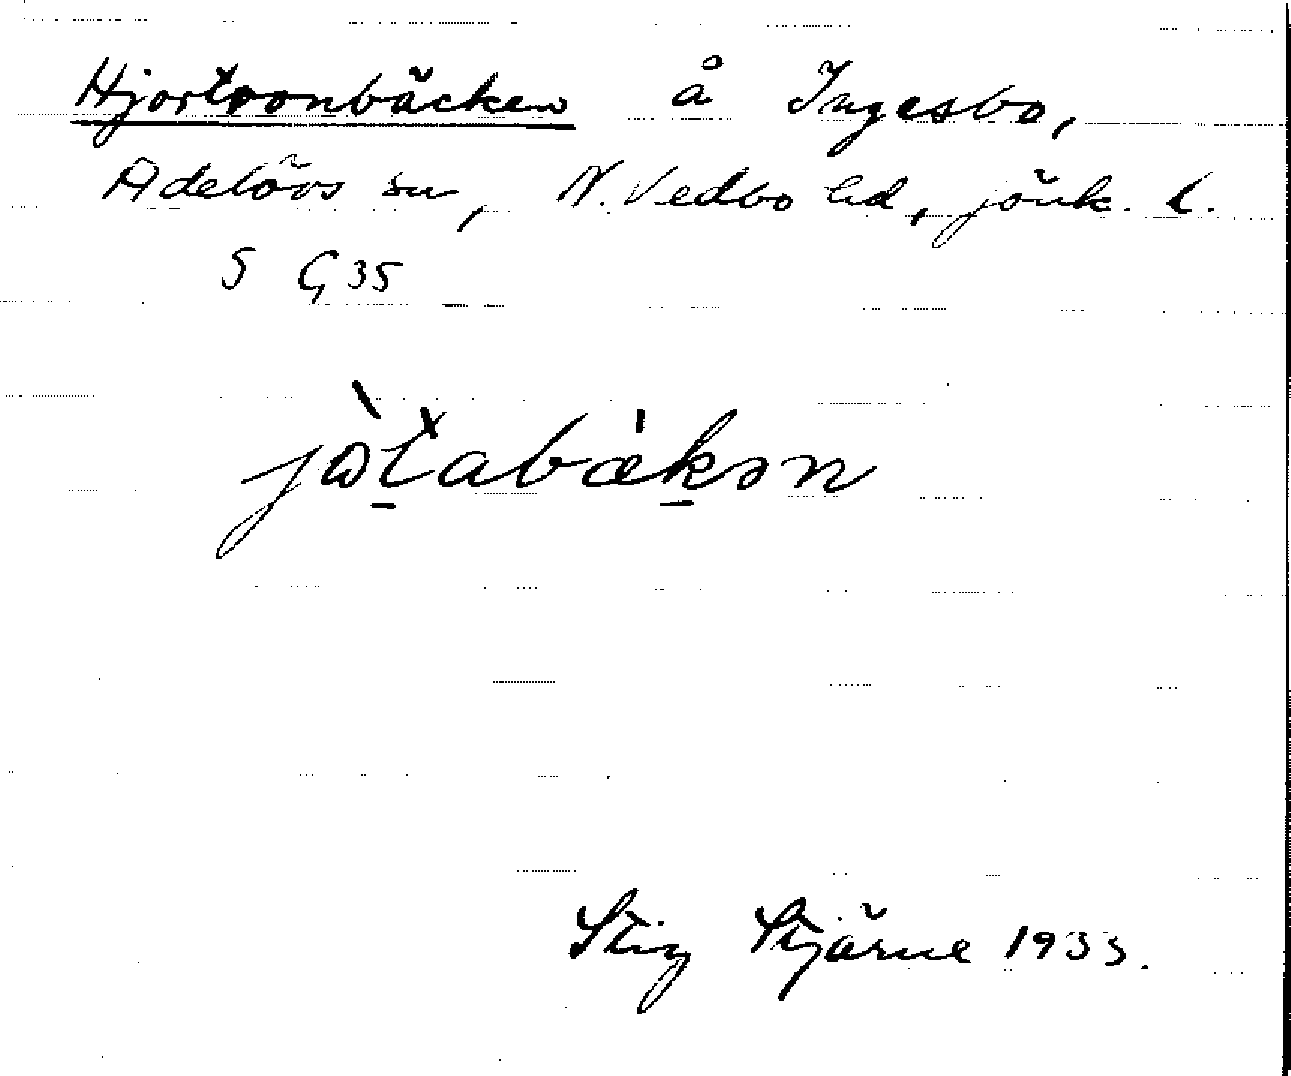 Hjortronbäcken å Ingesbo,
Adelövs sn, N. Vedbo hd, Jönk. l.
S G 35
jòtabǽkən
Stig Stjärne 1933.